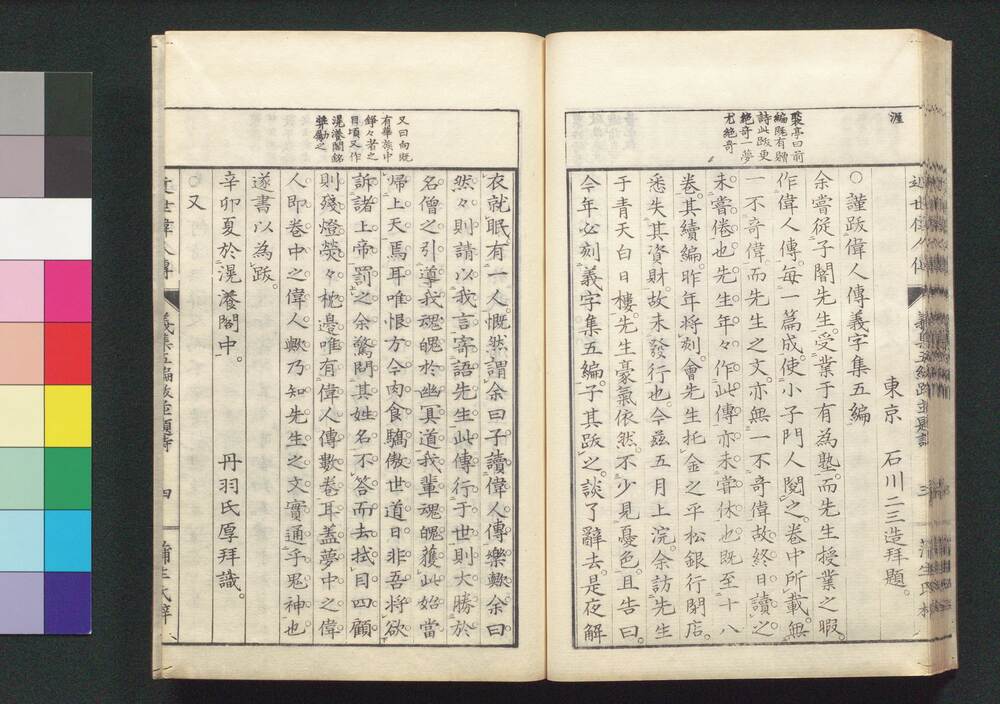 涯
聚亭曰前
編既有贈
詩此跋更
絶奇一夢
尤絶奇
東京　石川二三造拜題
○謹跋偉人傳義字集五編
余嘗從子闇先生受業于有為塾而先生授業之暇
作偉人傳每一篇成使小子門人閲之卷中所載無
一不奇偉而先生之文亦無一不奇偉故終日讀之
未嘗倦也先生年々作此傳亦未嘗休也既至十八
卷其續編昨年将刻會先生托金之平松銀行閉店
悉失其資財故未發行也今茲五月上浣余訪先生
于青天白日樓先生豪氣依然不少見憂色且告曰
今年必刻義字集五編子其跋之談了辭去是夜解
又曰向既
有華族中
錚々者之
目頃又作
滉瀁閣銘
奬勵之
衣就眠有一人慨然謂余曰子讀偉人傳樂歟余曰
然々則請以我言寄語先生此傳行于世則大勝於
名僧之引導我魂魄於幽冥道我輩魂魄獲此始當
帰上天焉耳唯恨方今肉食驕傲世道日非吾将欲
訴諸上帝罰之余驚問其姓名不答而去拭目四顧
則殘燈熒々枕邊唯有偉人傳數卷耳蓋夢中之偉
人即卷中之偉人歟乃知先生之文實通乎鬼神也
遂書以為跋
辛卯夏於滉瀁閣中　丹羽氏厚拜識
○又
四